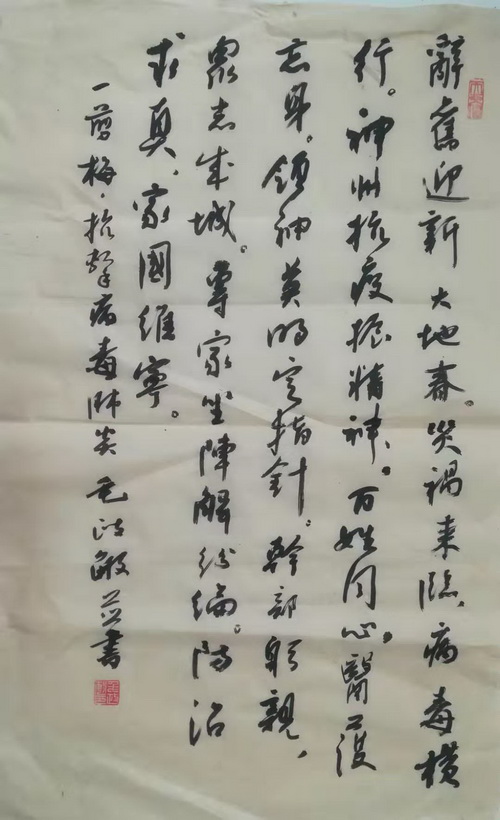 辭舊迎新大地春。災禍来臨,病毒横
行。神州抗疫振精神。百姓同心,醫護
忘身。领袖英明定指針。幹部躬親,
眾志成城。專家坐陣解紛綸。防治
求真,家國維寧。
一剪梅·抗擊病毒肺炎 毛政敏并書